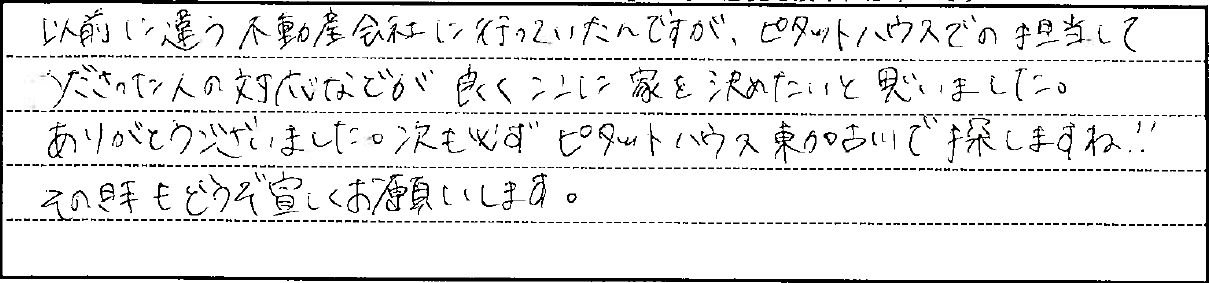 以前に違う不動産会社に行っていたんですが、ピタットハウスでの担当して
くださった人の対応などが良くここに家を決めたいと思いました。
ありがとうございました。次も必ずピタットハウス東加古川で探しますね!!
その時もどうぞ宜しくお願いします。